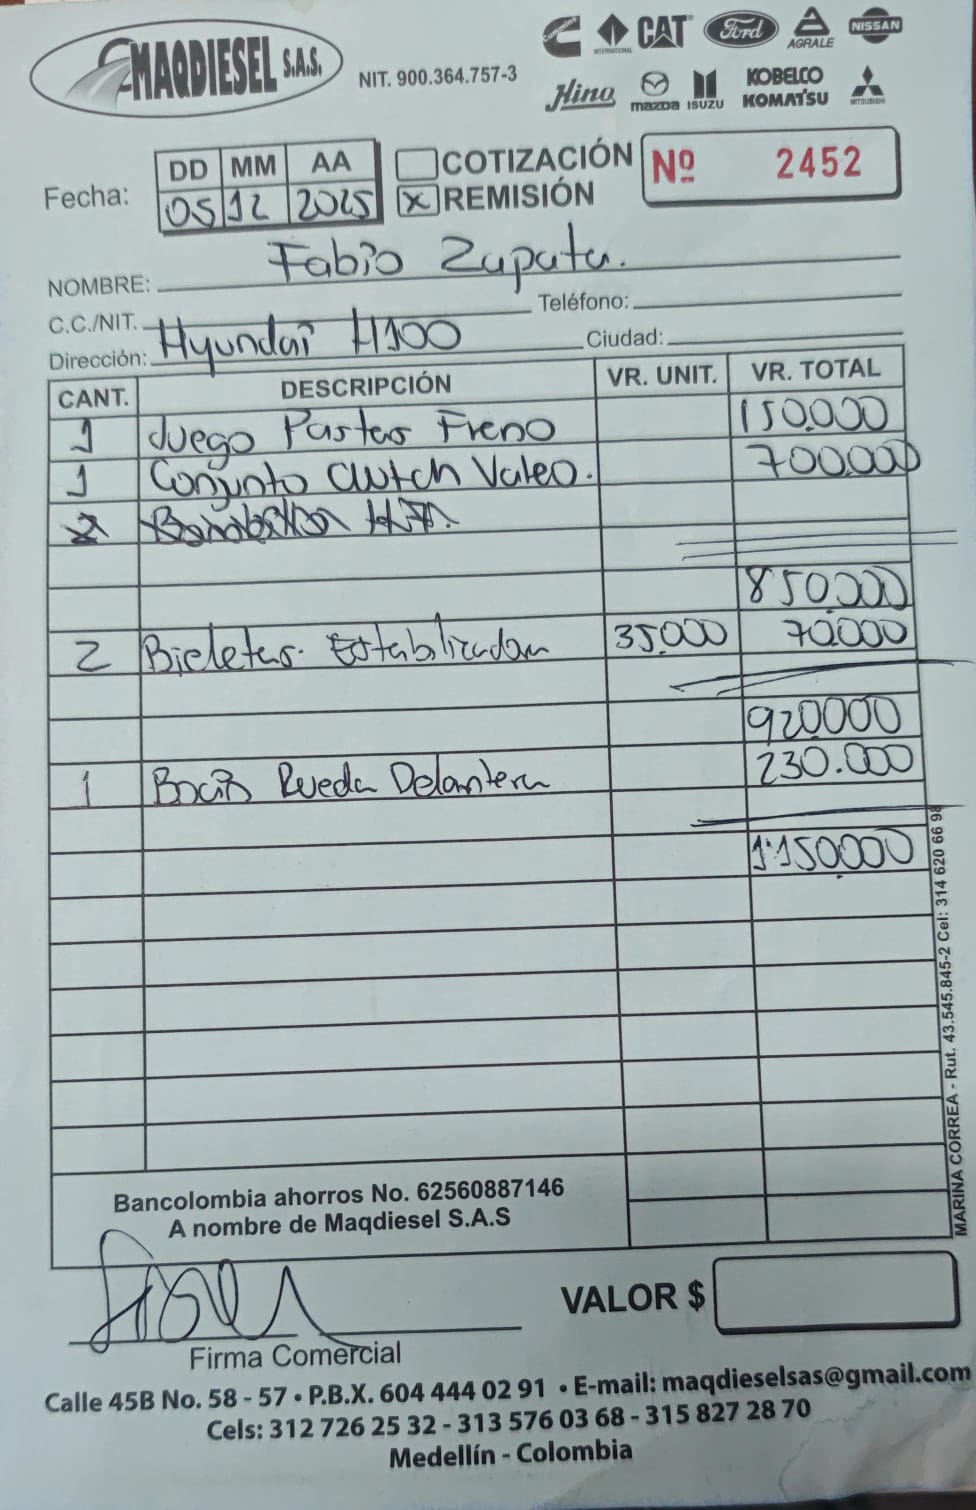 MAQDIESEL S.A.S.
NIT. 900.364.757-3
Cummins INTERNATIONAL CAT Ford AGRALE NISSAN
Hino mazda ISUZU KOBELCO KOMATSU MITSUBISHI
Fecha: DD MM AA
05 12 2025
COTIZACIÓN
X REMISIÓN
Nº 2452
NOMBRE: Fabio Zapata.
C.C./NIT. Teléfono:
Dirección: Hyundai H100 Ciudad:
CANT. DESCRIPCIÓN VR. UNIT. VR. TOTAL
1 Juego Pastas Freno 150.000
1 Conjunto Clutch Valeo. 700.000
2
850.000
2 Bieletas Estabilizadora 35.000 70.000
920000
1 Bocin Rueda Delantera 230.000
1'150.000
Bancolombia ahorros No. 62560887146
A nombre de Maqdiesel S.A.S
VALOR $
Firma Comercial
Calle 45B No. 58 - 57 • P.B.X. 604 444 02 91 • E-mail: maqdieselsas@gmail.com
Cels: 312 726 25 32 - 313 576 03 68 - 315 827 28 70
Medellín - Colombia
MARINA CORREA - Rut. 43.545.845-2 Cel: 314 620 66 98